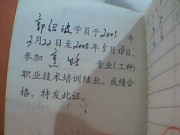 郭汉波学员于2005年
3月22日至2005年5月28日
参加 电焊 专业(工种)
职业技术培训结业,成绩合
格,特发此证。